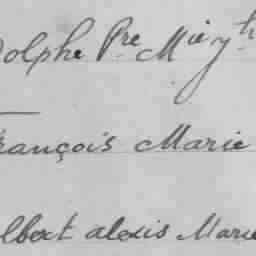 dolphe Pre Mie
rançois Marie
lbert alexis Marie